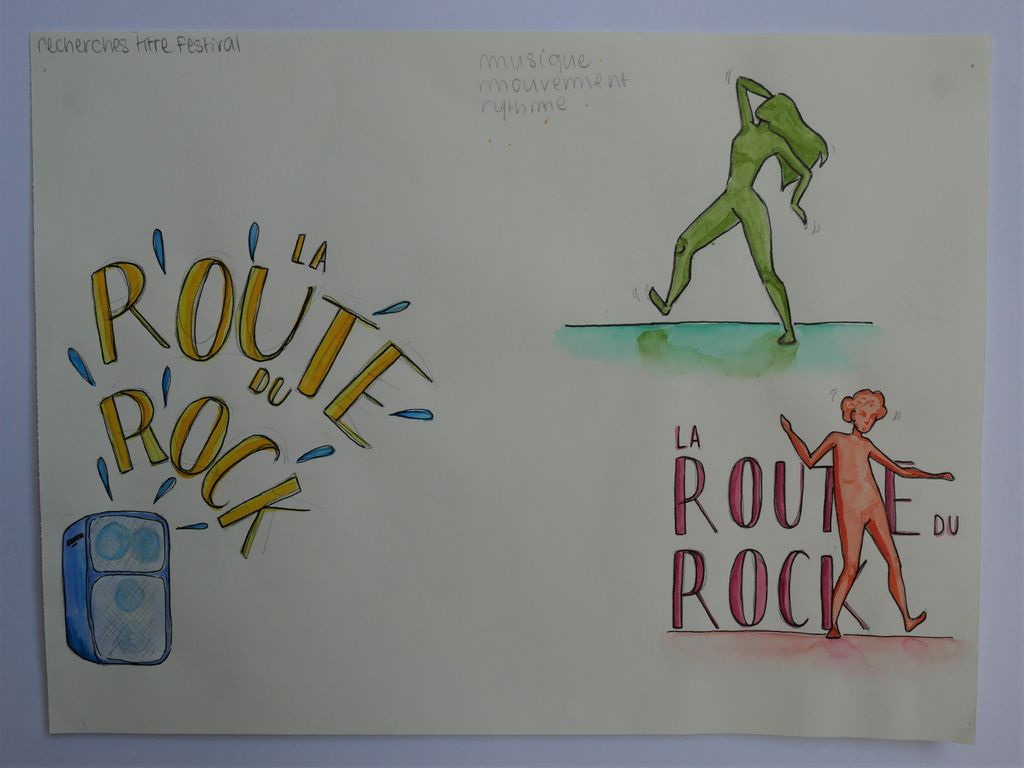 recherches titre Festival
musique
mouvement
rythme
LA
ROUTE
DU
ROCK
LA
ROUTE DU
ROCK